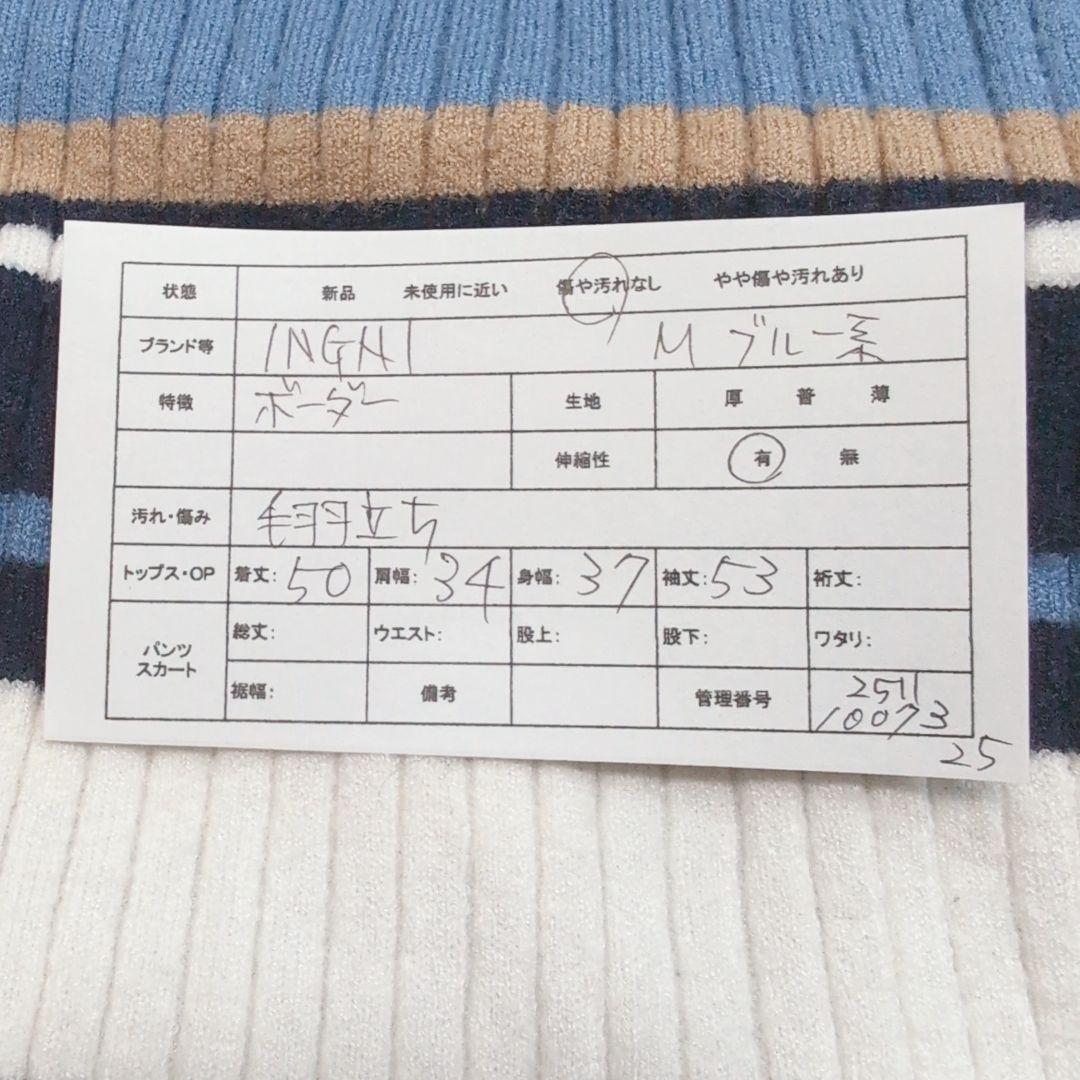 状態 新品 未使用に近い 傷や汚れなし やや傷や汚れあり
ブランド等 INGNI M ブルー系
特徴 ボーダー 生地 厚 普 薄
伸縮性 有 無
汚れ・傷み 毛羽立ち
トップス・OP 着丈: 50 肩幅: 34 身幅: 37 袖丈: 53 裄丈:
パンツ スカート 総丈: ウエスト: 股上: 股下: ワタリ:
裾幅: 備考 管理番号 2511
10073
25